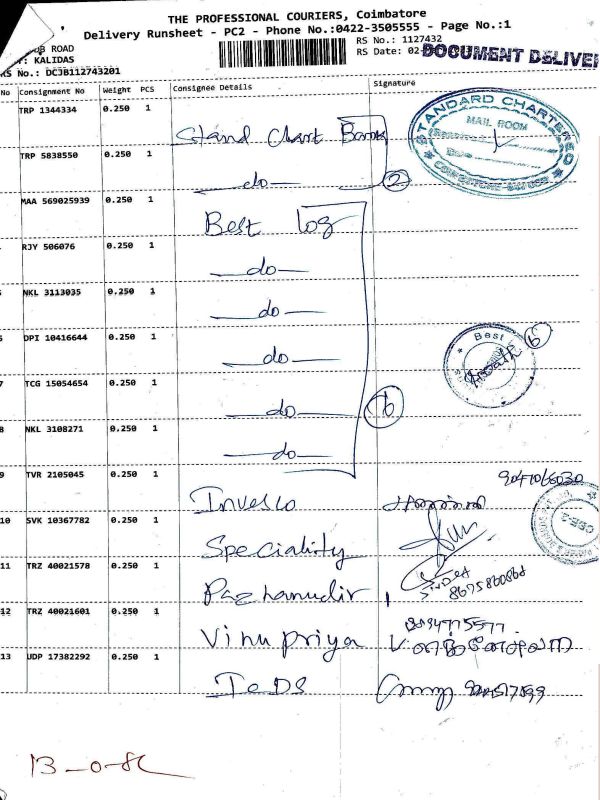 THE PROFESSIONAL COURIERS, Coimbatore
Delivery Runsheet - PC2 - Phone No.:0422-3505555 - Page No.:1
RS No.: 1127432
ROAD
RS Date: 02
DOCUMENT DELIVER
: KALIDAS
RS No.: DCJB112743201
No Consignment No Weight PCS Consignee Details Signature
TRP 1344334 0.250 1 Stand Chart Bank
STANDARD CHARTERED
MAIL ROOM
TRP 5838550 0.250 1 —do— 2
MAA 569025939 0.250 1 Best log
RJY 506076 0.250 1 —do—
NKL 3113035 0.250 1 —do—
DPI 10416644 0.250 1 —do— Best 6
7 TCG 15054654 0.250 1 —do— 6
8 NKL 3108271 0.250 1 —do—
9 TVR 2105045 0.250 1 Invesco
10 SVK 10367782 0.250 1 Speciality
11 TRZ 40021578 0.250 1 Pazhamudir
8675860868
12 TRZ 40021601 0.250 1 Vinupriya
13 UDP 17382292 0.250 1 IeDS